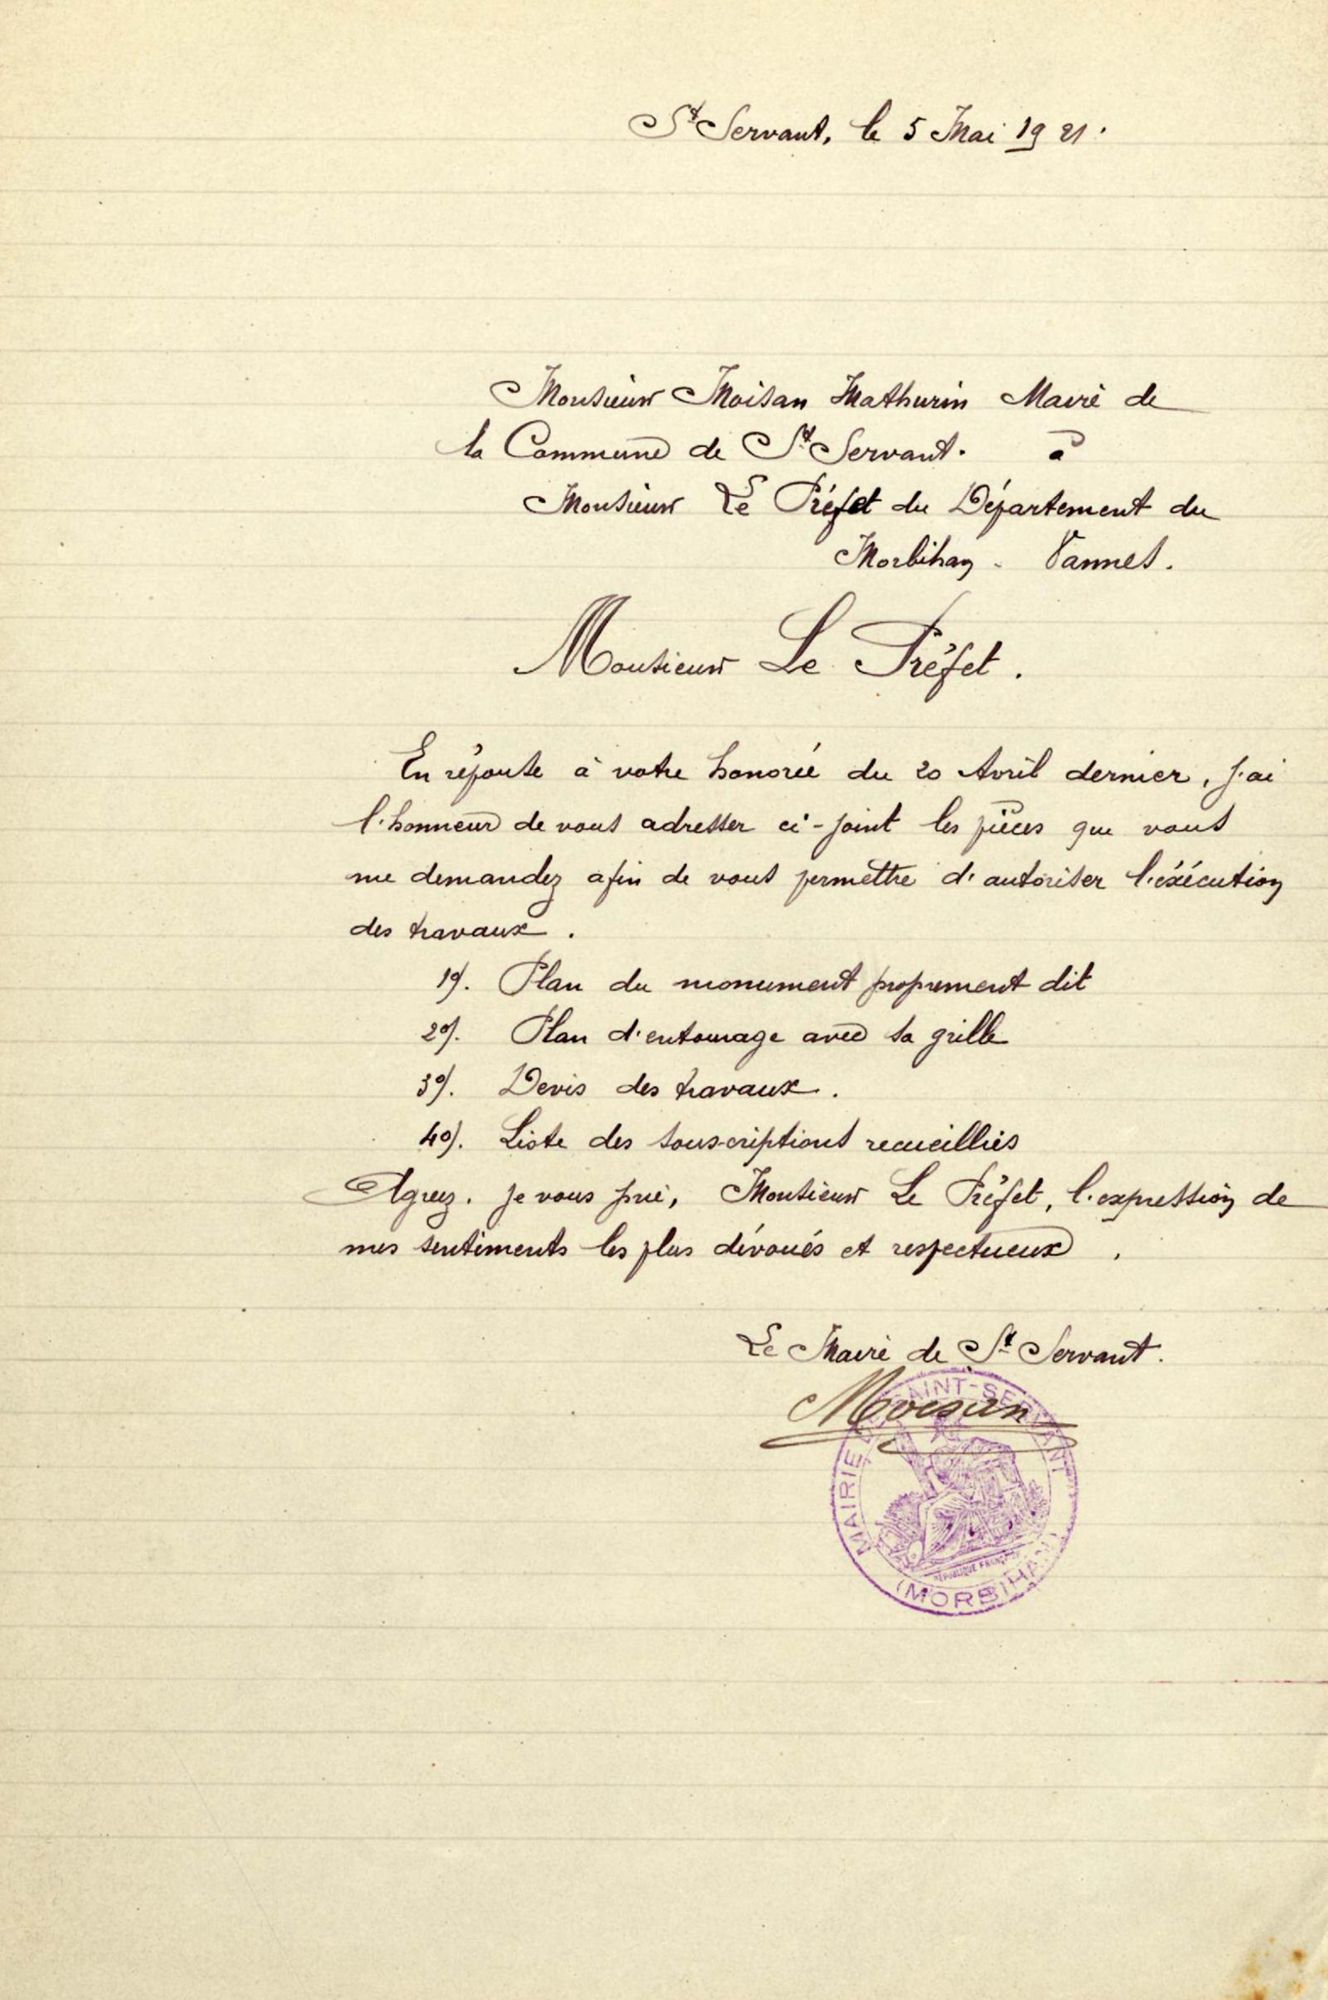 St Servant, le 5 Mai 1921.
Monsieur Moisan Mathurin Maire de
la Commune de St Servant. à
Monsieur Le Préfet du Département du
Morbihan - Vannes.
Monsieur Le Préfet.
En réponse à votre honorée du 20 Avril dernier, j'ai
l'honneur de vous adresser ci-joint les pièces que vous
me demandez afin de vous permettre d'autoriser l'éxécution
des travaux.
1o/. Plan du monument proprement dit
2o/. Plan d'entourage avec sa grille
3o/. Devis des travaux.
4o/. Liste des souscriptions recueillies
Agréez, je vous prie, Monsieur Le Préfet, l'expression de
mes sentiments les plus dévoués et respectueux.
Le Maire de St Servant.
Moisan
MAIRIE DE SAINT-SERVANT
RÉPUBLIQUE FRANÇAISE
(MORBIHAN)